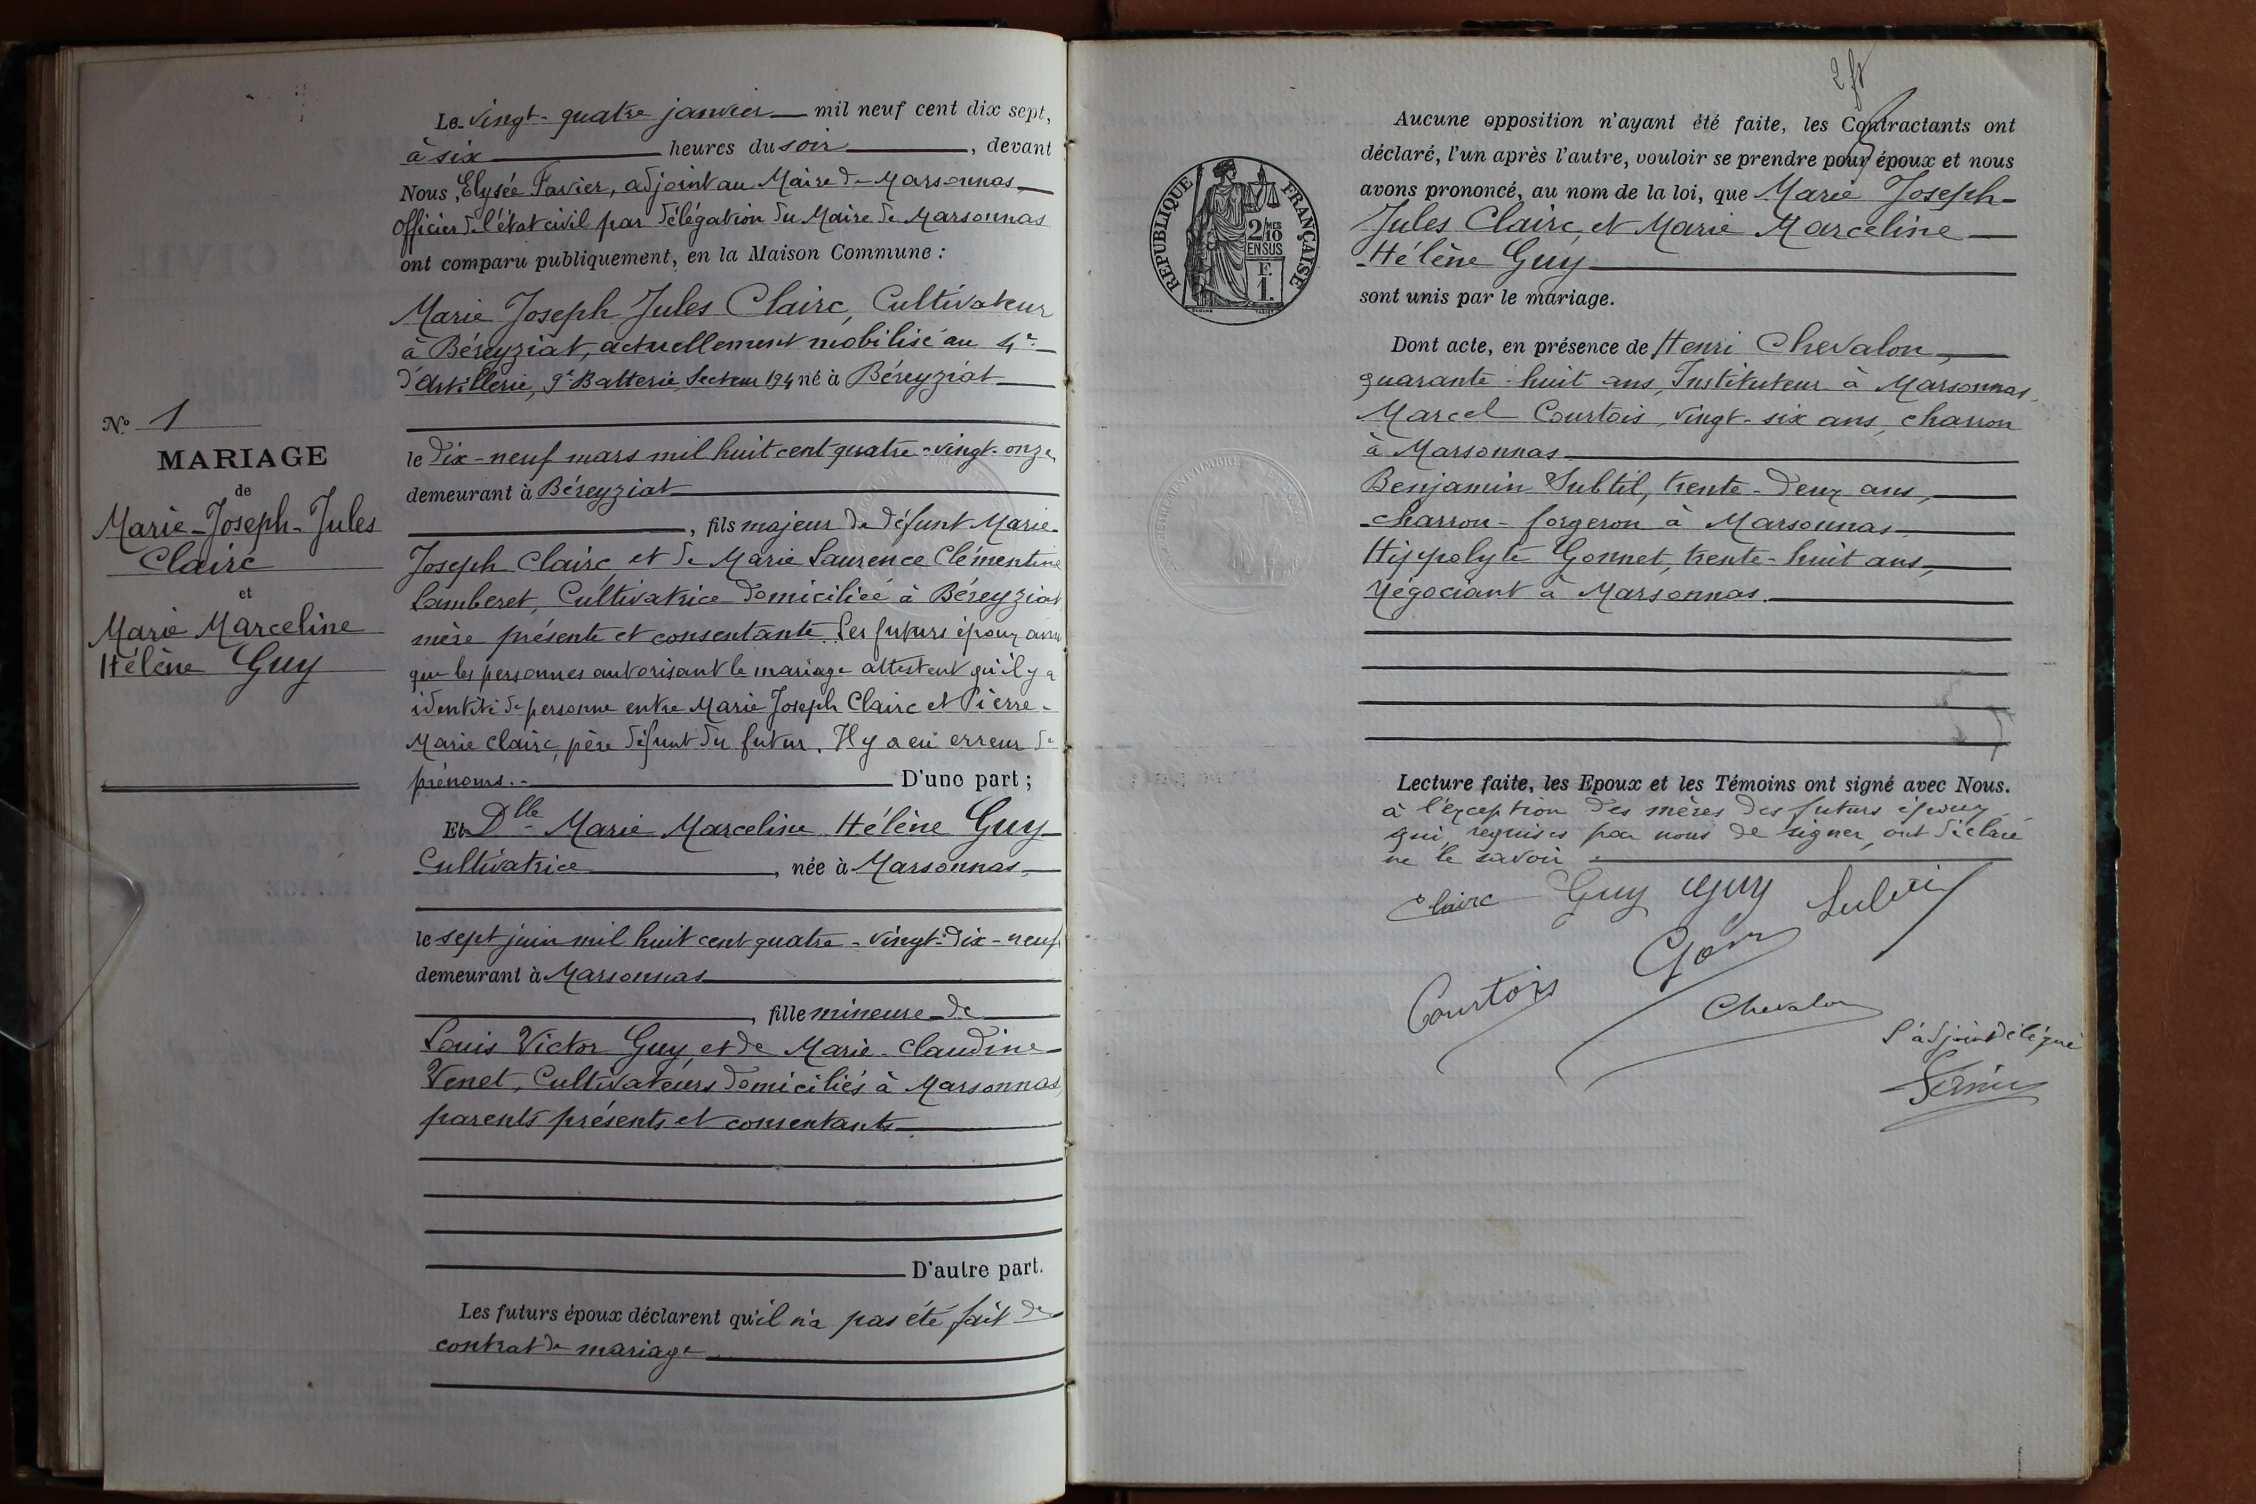 N° 1
MARIAGE
de
Marie-Joseph-Jules
Clairc
et
Marie Marceline
Hélène Guy
Le vingt-quatre janvier mil neuf cent dix sept,
à six heures du soir, devant
Nous, Elysée Favier, adjoint au Maire de Marsonnas
officier de l'état civil par délégation du Maire de Marsonnas
ont comparu publiquement, en la Maison Commune :
Marie Joseph Jules Clairc, Cultivateur
à Béreyziat, actuellement mobilisé au 4e
d'Artillerie, 9e Batterie, Secteur 194 né à Béreyziat
le dix-neuf mars mil huit cent quatre-vingt-onze
demeurant à Béreyziat
, fils majeur de défunt Marie
Joseph Clairc, et de Marie Laurence Clémentine
Lamberet, Cultivatrice domiciliée à Béreyziat
mère présente et consentante. Les futurs époux ainsi
que les personnes autorisant le mariage attestent qu'il y a
identité de personne entre Marie Joseph Clairc et Pierre-
Marie Clairc, père défunt du futur. Il y a eu erreur de
prénoms. D'une part ;
Et Dlle Marie Marceline Hélène Guy
Cultivatrice, née à Marsonnas
le sept juin mil huit cent quatre-vingt-dix-neuf
demeurant à Marsonnas
, fille mineure de
Louis Victor Guy, et de Marie-Claudine
Venet, Cultivateurs domiciliés à Marsonnas,
parents présents et consentants
D'autre part.
Les futurs époux déclarent qu'il n'a pas été fait de
contrat de mariage
2 fr
RÉPUBLIQUE FRANÇAISE
2/10 MES
EN SUS
F.
1.
Aucune opposition n'ayant été faite, les Contractants ont
déclaré, l'un après l'autre, vouloir se prendre pour époux et nous
avons prononcé, au nom de la loi, que Marie Joseph-
Jules Clairc, et Marie Marceline
Hélène Guy
sont unis par le mariage.
Dont acte, en présence de Henri Chevalon,
quarante-huit ans, Instituteur à Marsonnas,
Marcel Courtois, vingt-six ans, charron
à Marsonnas
Benjamin Subtil, trente-deux ans,
charron-forgeron à Marsonnas
Hippolyte Gonnet, trente-huit ans,
Négociant à Marsonnas.
Lecture faite, les Epoux et les Témoins ont signé avec Nous.
à l'exception des mères des futurs époux
qui, requises par nous de signer, ont déclaré
ne le savoir.
Clairc Guy Guy Subtil
Courtois
Chevalon
L'adjoint délégué